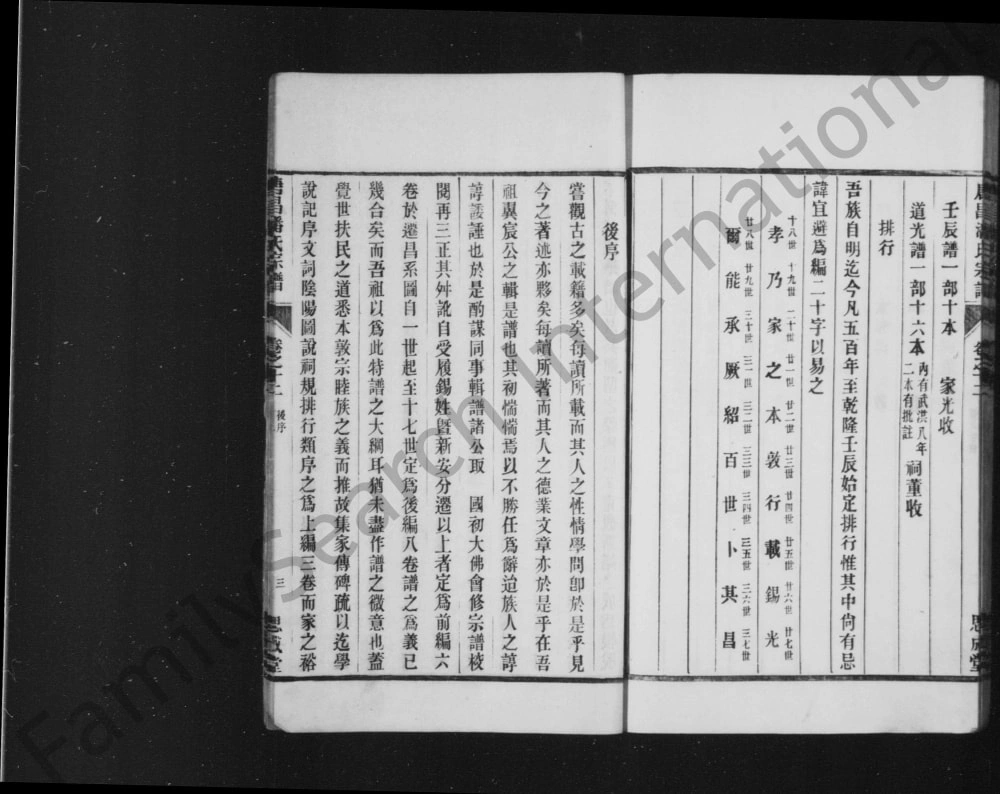 壬辰譜一部十本　家光收
道光譜一部十六本 內有武洪八年二本有批註 祠董收
排行
吾族自明迄今凡五百年至乾隆壬辰始定排行惟其中尙有忌
諱宜避爲編二十字以易之
十八世 十九世 二十世 廿一世 廿二世 廿三世 廿四世 廿五世 廿六世 廿七世
孝乃家之本敦行載錫光
廿八世 廿九世 三十世 三一世 三二世 三三世 三四世 三五世 三六世 三七世
爾能承厥紹百世卜其昌
思成堂
後序
嘗觀古之載籍多矣每讀所載而其人之性情學問卽於是乎見
今之著述亦夥矣每讀所著而其人之德業文章亦於是乎在吾
祖翼宸公之輯是譜也其初惴惴焉以不勝任爲辭迨族人之諄
諄諉諈也於是酌謀同事輯譜諸公取　國初大佛會修宗譜校
閱再三正其舛訛自受履錫姓曁新安分遷以上者定爲前編六
卷於遷昌系圖自一世起至十七世定爲後編八卷譜之爲義已
幾合矣而吾祖以爲此特譜之大綱耳猶未盡作譜之微意也蓋
覺世扶民之道悉本敦宗睦族之義而推故集家傳碑疏以迄學
說記序文詞陰陽圖說祠規排行類序之爲上編三卷而家之裕
潘氏宗譜
卷之十二
後序
三
思成堂
FamilySearch International